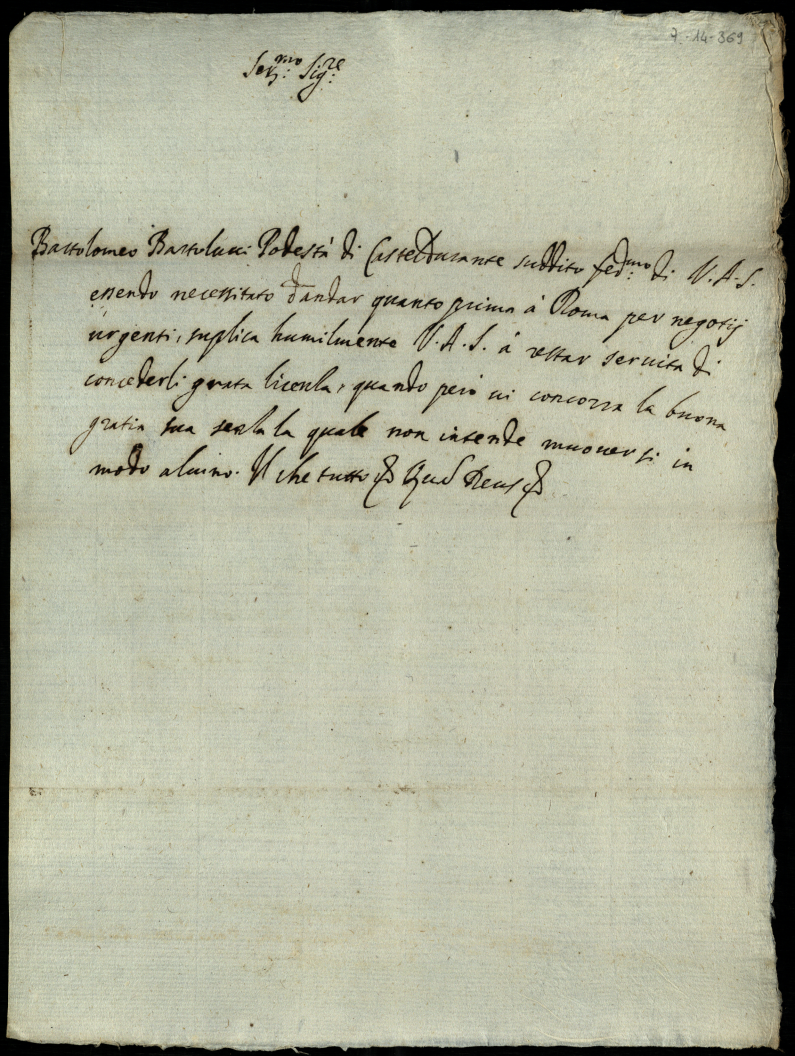 7-14-369
Ser.mo Sig.re
Bartolomeo Bartolucci Podestà di Casteldurante suddito fed.mo di V.A.S.
essendo necessitato d'andar quanto prima à Roma per negotij
urgenti, suplica humilmente V.A.S. à restar servita di
concederli grata licenza, quando però ui concorra la buona
gratia sua senza la quale non intende muouersi in
modo alcuno. Il che tutto &c Quas Deus &c